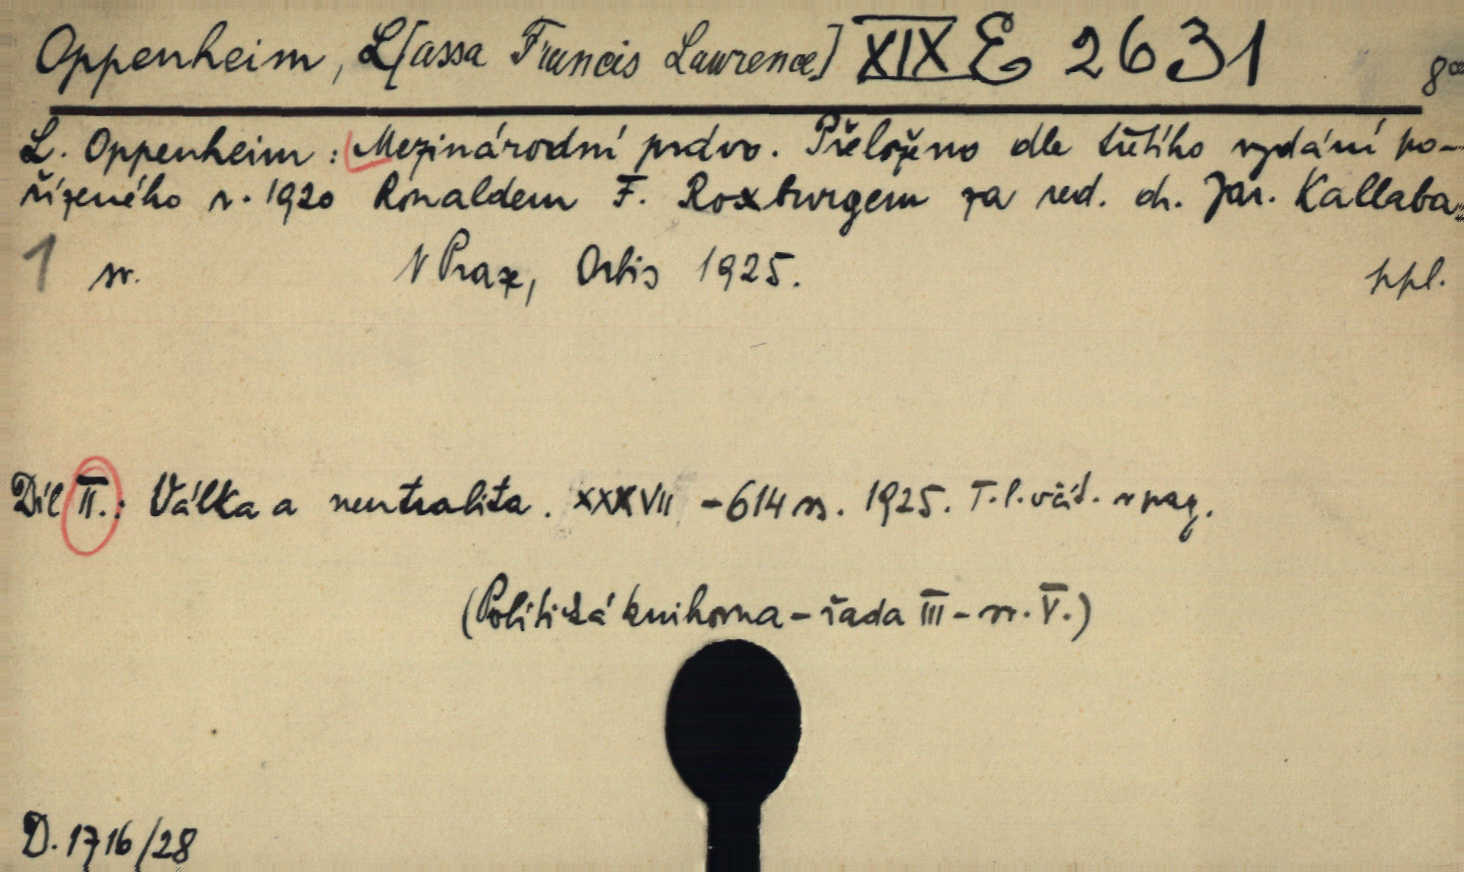 Oppenheim, L[assa Francis Lawrence] XIX E 2631 8°
L. Oppenheim: Mezinárodní právo. Přeloženo dle třetího vydání po-
řízeného r. 1920 Ronaldem F. Roxburgem za red. dr. Jar. Kallaba.
1 sv. V Praze, Orbis 1925. ppl.
Díl II.: Válka a neutralita. XXXVII - 614 ss. 1925. T. l. včít. v pag.
(Politická knihovna - řada III - sv. V.)
D. 1716/28